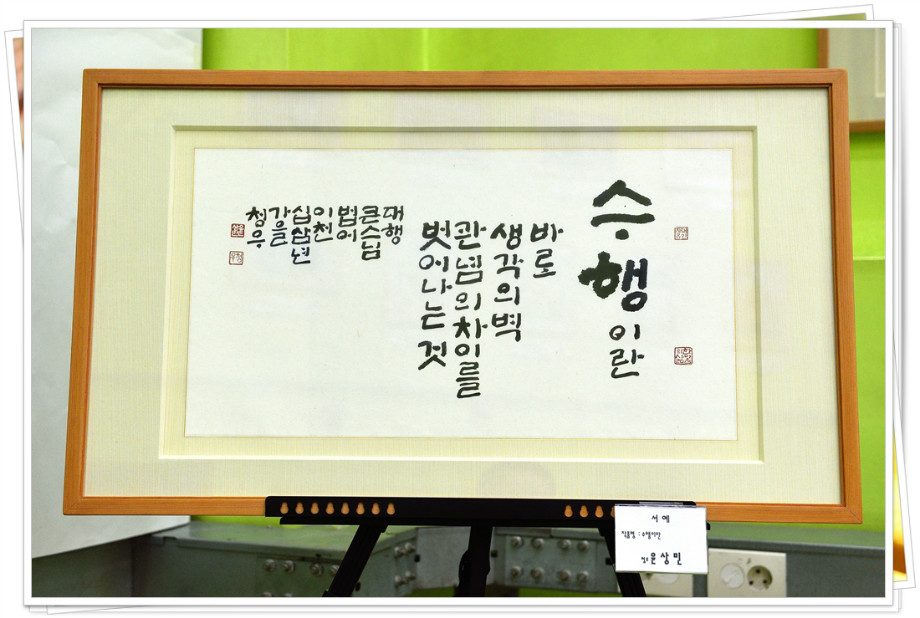 수행이란
바로
생각의벽
관념의차이를
벗어나는것
대행
큰스님
법어
이천
십삼년
가을
청우
서예
작품명 : 수행이란
윤상민